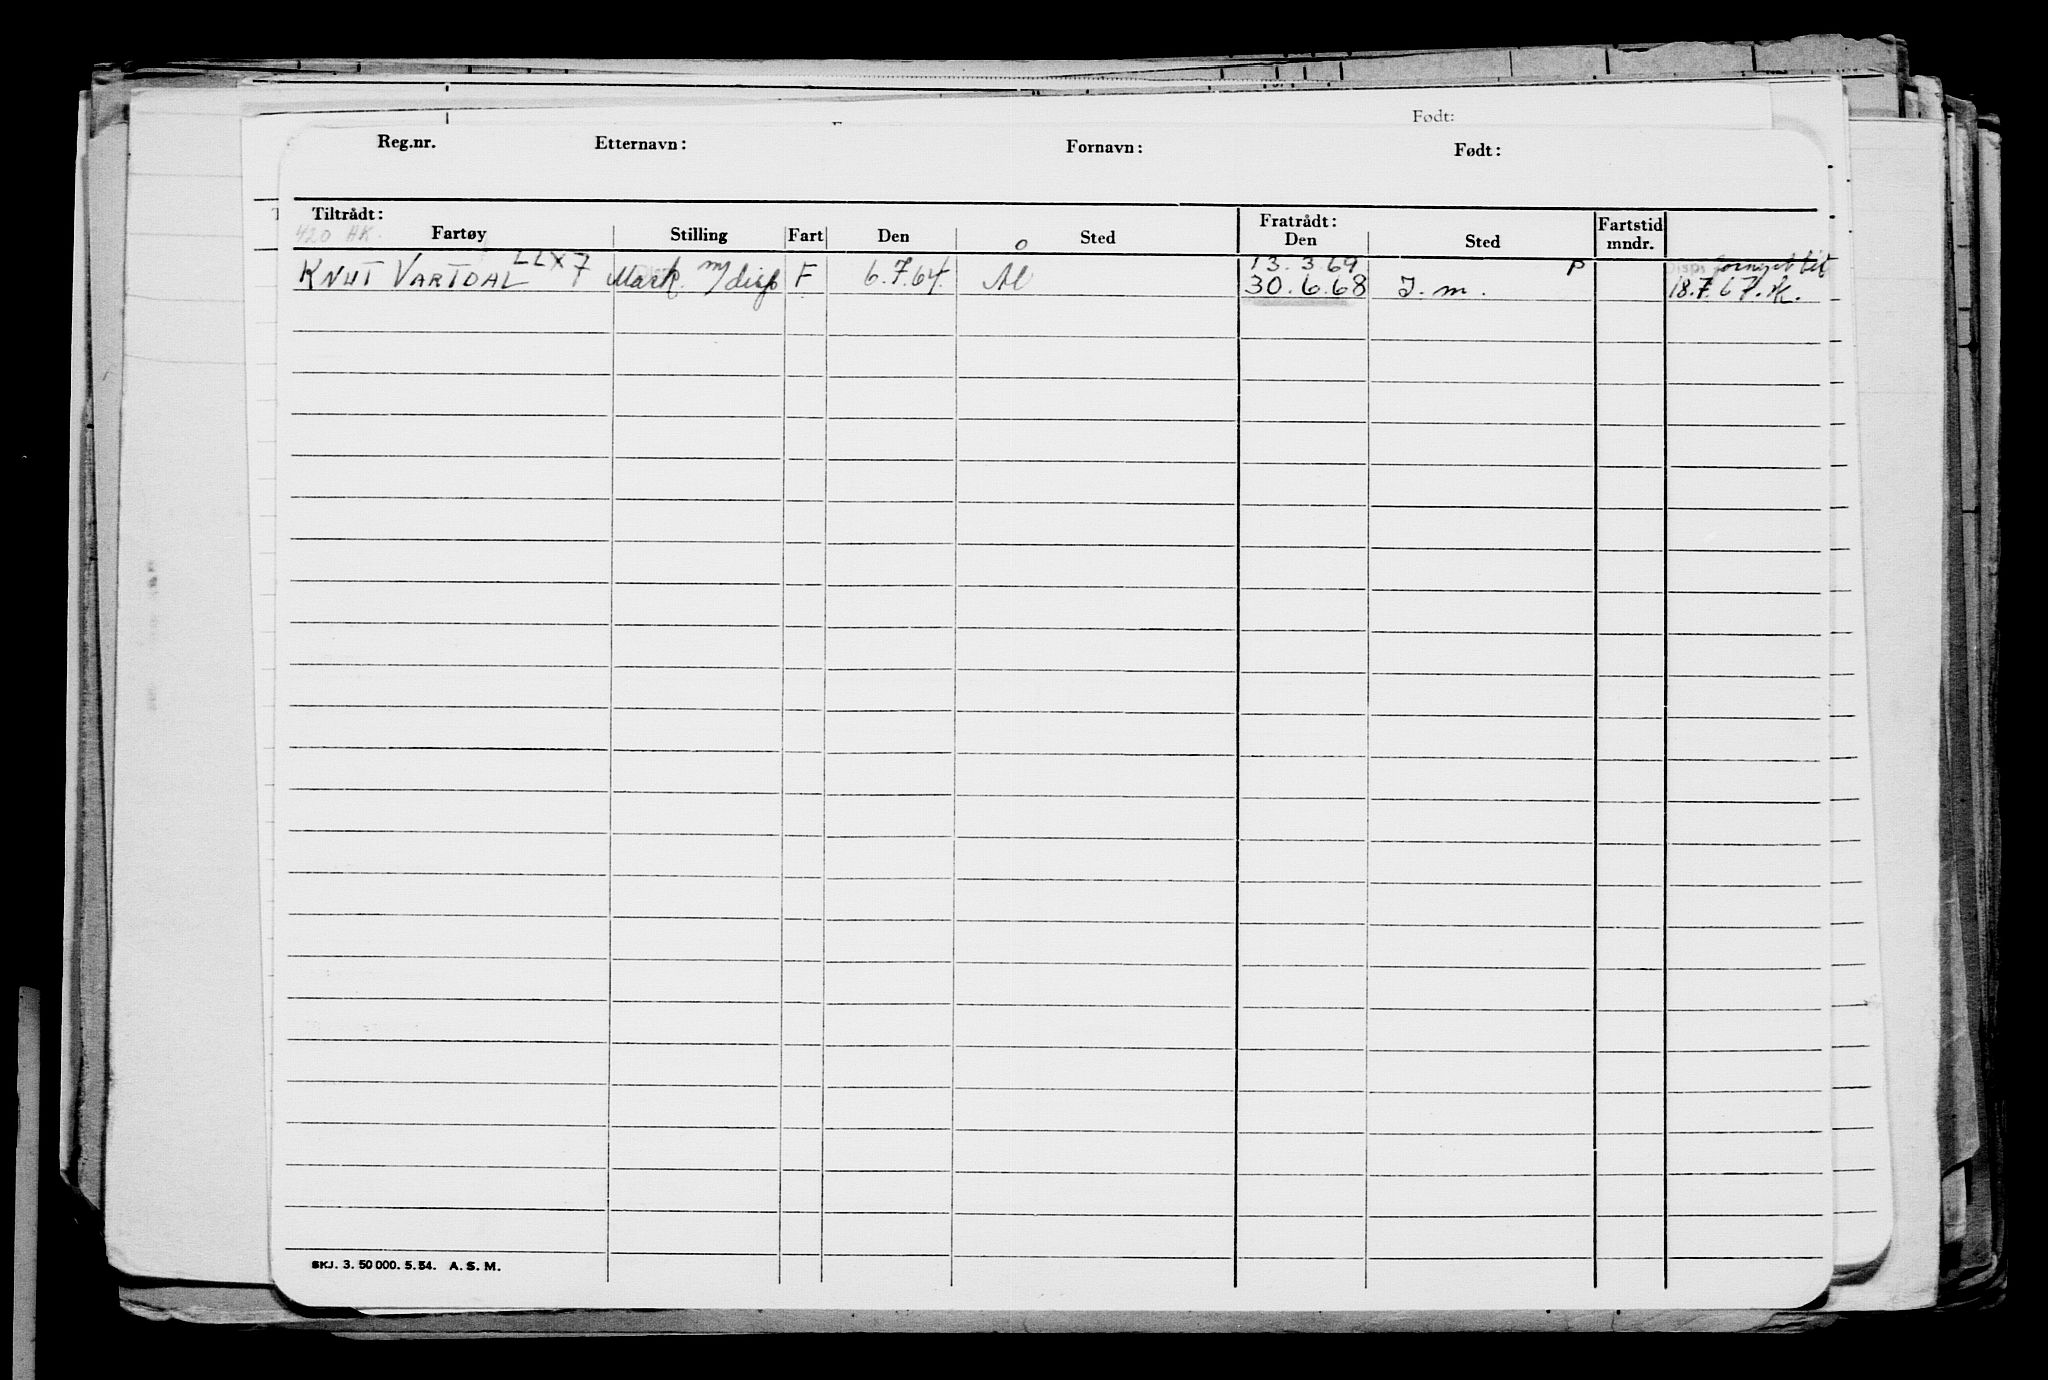 Født:
Reg.nr. Etternavn: Fornavn: Født:
Tiltrådt: Fratrådt: Fartstid
420 HK. Fartøy Stilling Fart Den Sted Den Sted mndr.
LLX7 13.3.69 P Disp fornyet til
KNUT VARTDAL Mask. m/disp F 6.7.64. Ål 30.6.68 J.m. 18.7.67.
SKJ. 3. 50 000. 5. 54. A. S. M.